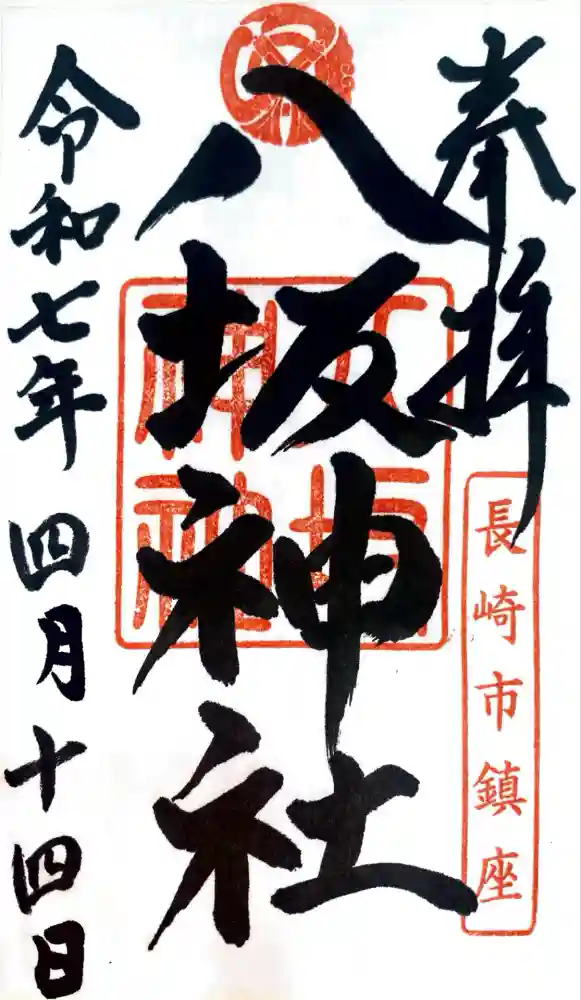 奉拝
長崎市鎮座
八坂神社
八坂神社
令和七年四月十四日